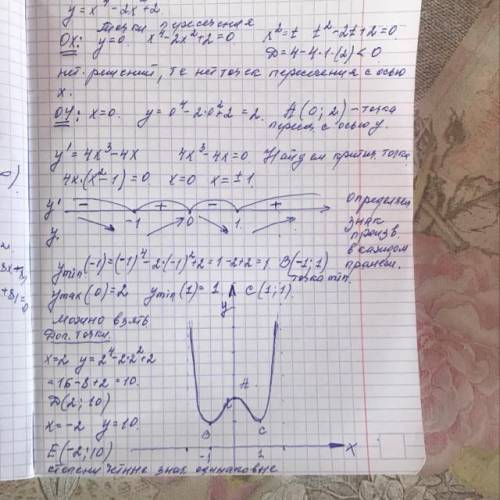 y = x⁴ - 2x² + 2
Точки пересечения
OX: y=0. x⁴-2x²+2=0 x²=t t²-2t+2=0
D=4-4·1·(2)<0.
нет решений, т.е нет точек пересечения с осью
x.
OY: x=0. y=0⁴-2·0²+2=2. A(0;2) - точка
перес. с осью y.
y'=4x³-4x 4x³-4x=0 Найдём критич. точки
4x·(x²-1)=0. x=0 x=±1.
y' - + - + Определяем
-1 0 1 знак
y произв.
в каждом
ymin(-1)=(-1)⁴-2·(-1)²+2=1-2+2=1. B(-1;1) промеж.
точка min.
ymax(0)=2 ymin(1)=1 C(1;1).
Можно взять y
Доп. точки.
x=2 y=2⁴-2·2²+2
=16-8+2=10. A
D(2;10)
x=-2 y=10. B C
E(-2;10) -1 1 x
степени чётные знак одинаковые
8x+
+81=0